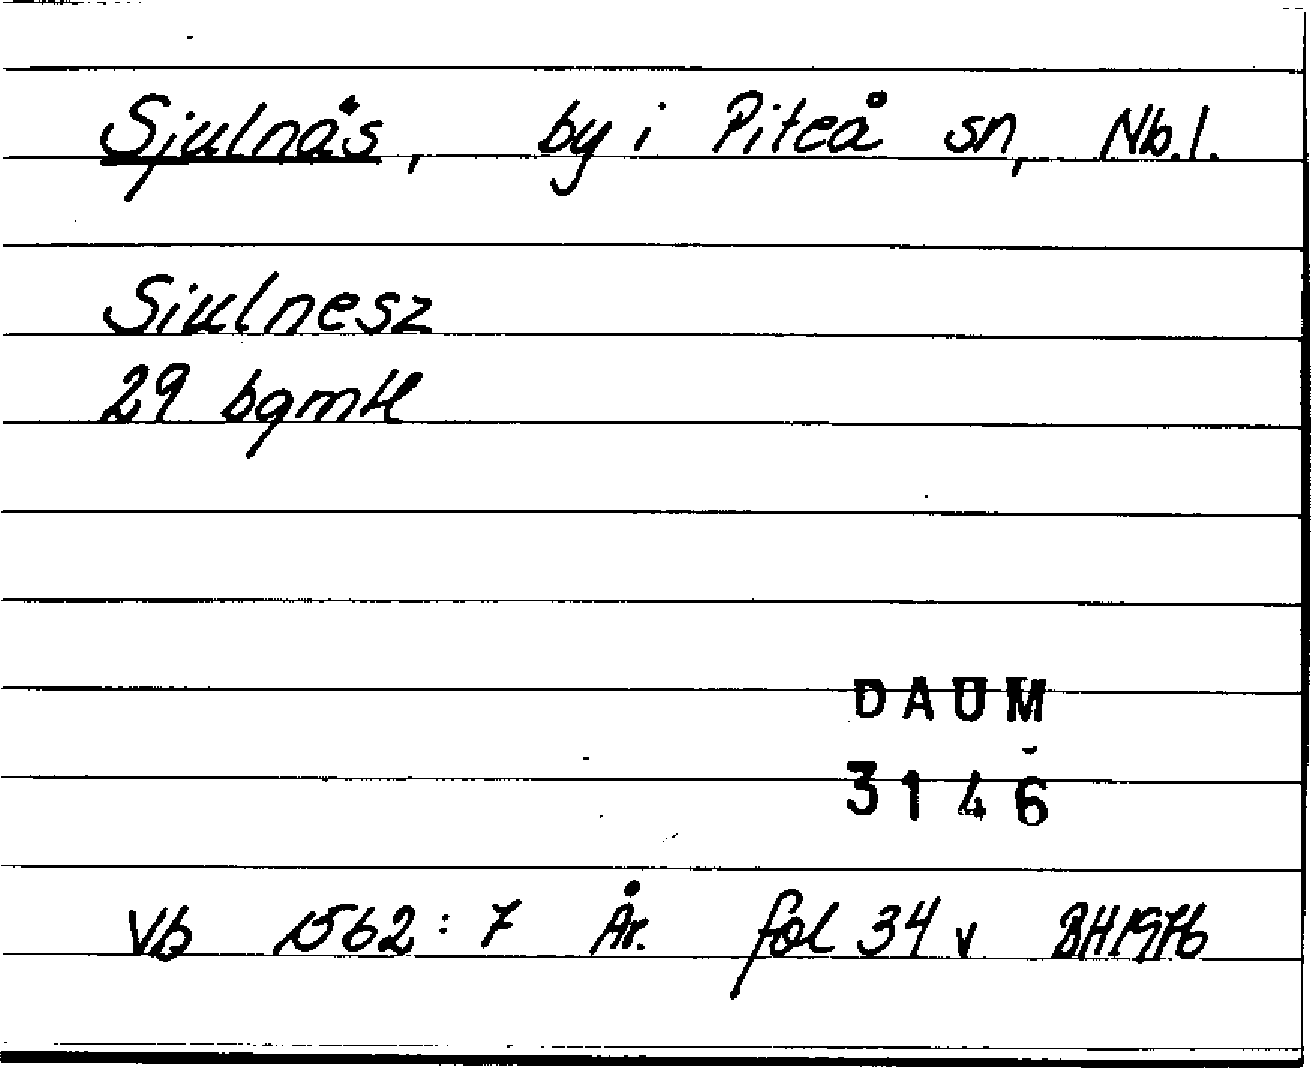 Sjulnäs, by i Piteå sn, Nb.l.
Siulnesz
29 bgmtl
DAUM
3146
Vb 1562:7 År. fol 34 v BH 1976